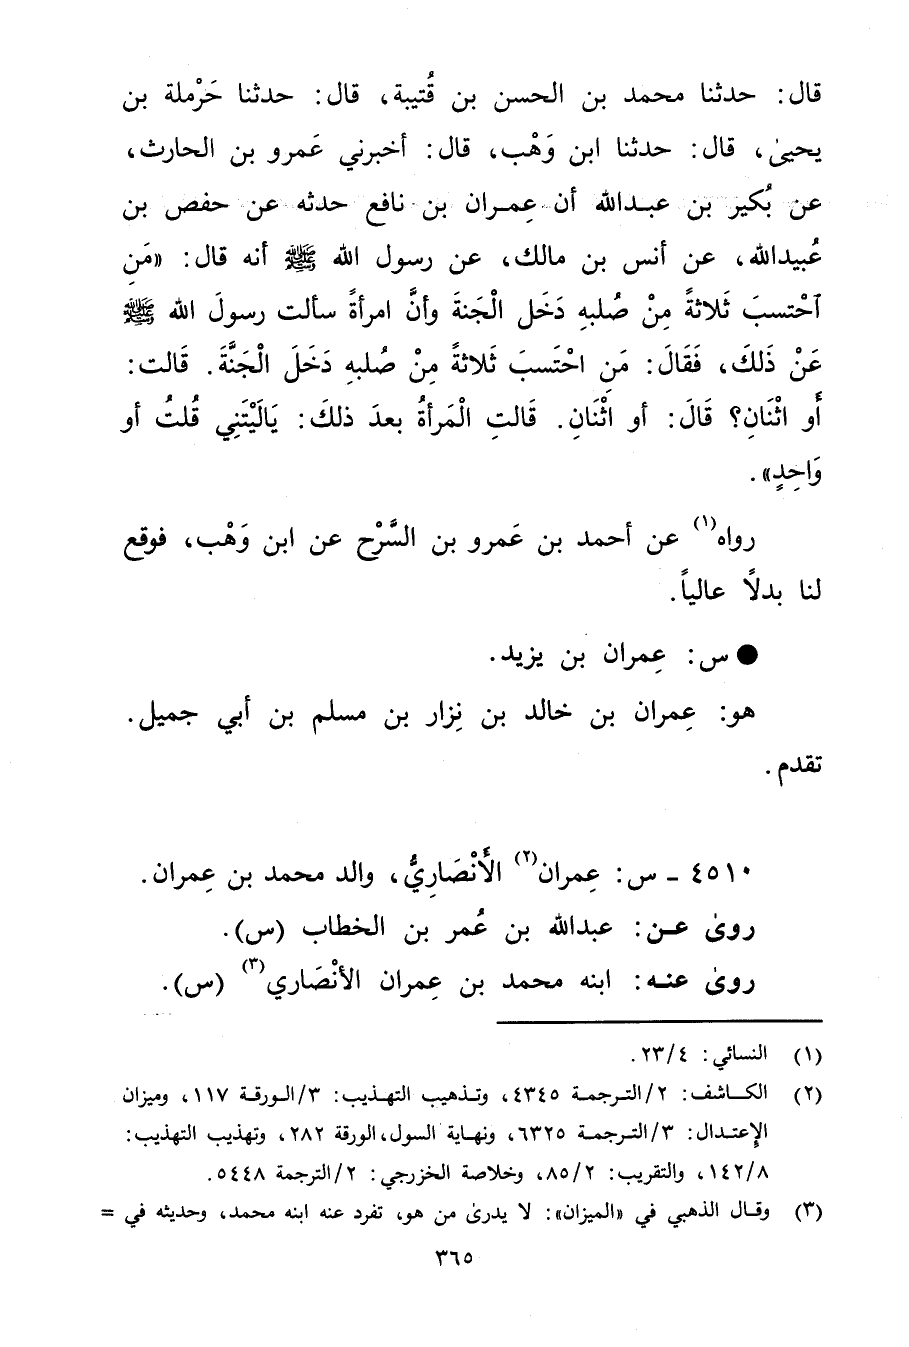 قال: حدثنا محمد بن الحسن بن قُتيبة، قال: حدثنا حَرْملة بن
يحيىٰ، قال: حدثنا ابن وَهْب، قال: أخبرني عَمرو بن الحارث،
عن بُكير بن عبدالله أن عِمران بن نافع حدثه عن حفص بن
عُبيدالله، عن أنس بن مالك، عن رسول الله ﷺ أنه قال: «مَنِ
ٱحْتسبَ ثَلاثةً مِنْ صُلبهِ دَخَل الْجَنةَ وأنَّ امرأةً سألت رسولَ الله ﷺ
عَنْ ذَلكَ، فَقَالَ: مَنِ احْتَسبَ ثلاثةً مِنْ صُلبهِ دَخَلَ الْجَنَّةَ. قَالت:
أَو اثْنَانِ؟ قَالَ: أو اثْنَانِ. قَالتِ الْمَرأةُ بعدَ ذلكَ: يَالَيْتَنِي قُلتُ أو
وَاحِدٍ».
رواه(١) عن أحمد بن عَمرو بن السَّرْحِ عن ابن وَهْب، فوقع
لنا بدلًا عالياً.
● س: عِمران بن يزيد.
هو: عِمران بن خالد بن نِزار بن مسلم بن أبي جميل.
تقدم.
٤٥١٠ ـ س: عِمران(٢) الأَنْصَارِيُّ، والد محمد بن عِمران.
روىٰ عـن: عبدالله بن عُمر بن الخطاب (س).
روىٰ عنـه: ابنه محمد بن عِمران الأنْصَاري(٣) (س).
(١) النسائي: ٢٣/٤.
(٢) الكـاشف: ٢/الترجمة ٤٣٤٥، وتذهيب التهذيب: ٣/الورقة ١١٧، وميزان
الإعتدال: ٣/الترجمة ٦٣٢٥، ونهاية السول، الورقة ٢٨٢، وتهذيب التهذيب:
١٤٢/٨، والتقريب: ٨٥/٢، وخلاصة الخزرجي: ٢/الترجمة ٥٤٤٨.
(٣) وقال الذهبي في «الميزان»: لا يدرىٰ من هو، تفرد عنه ابنه محمد، وحديثه في =
٣٦٥